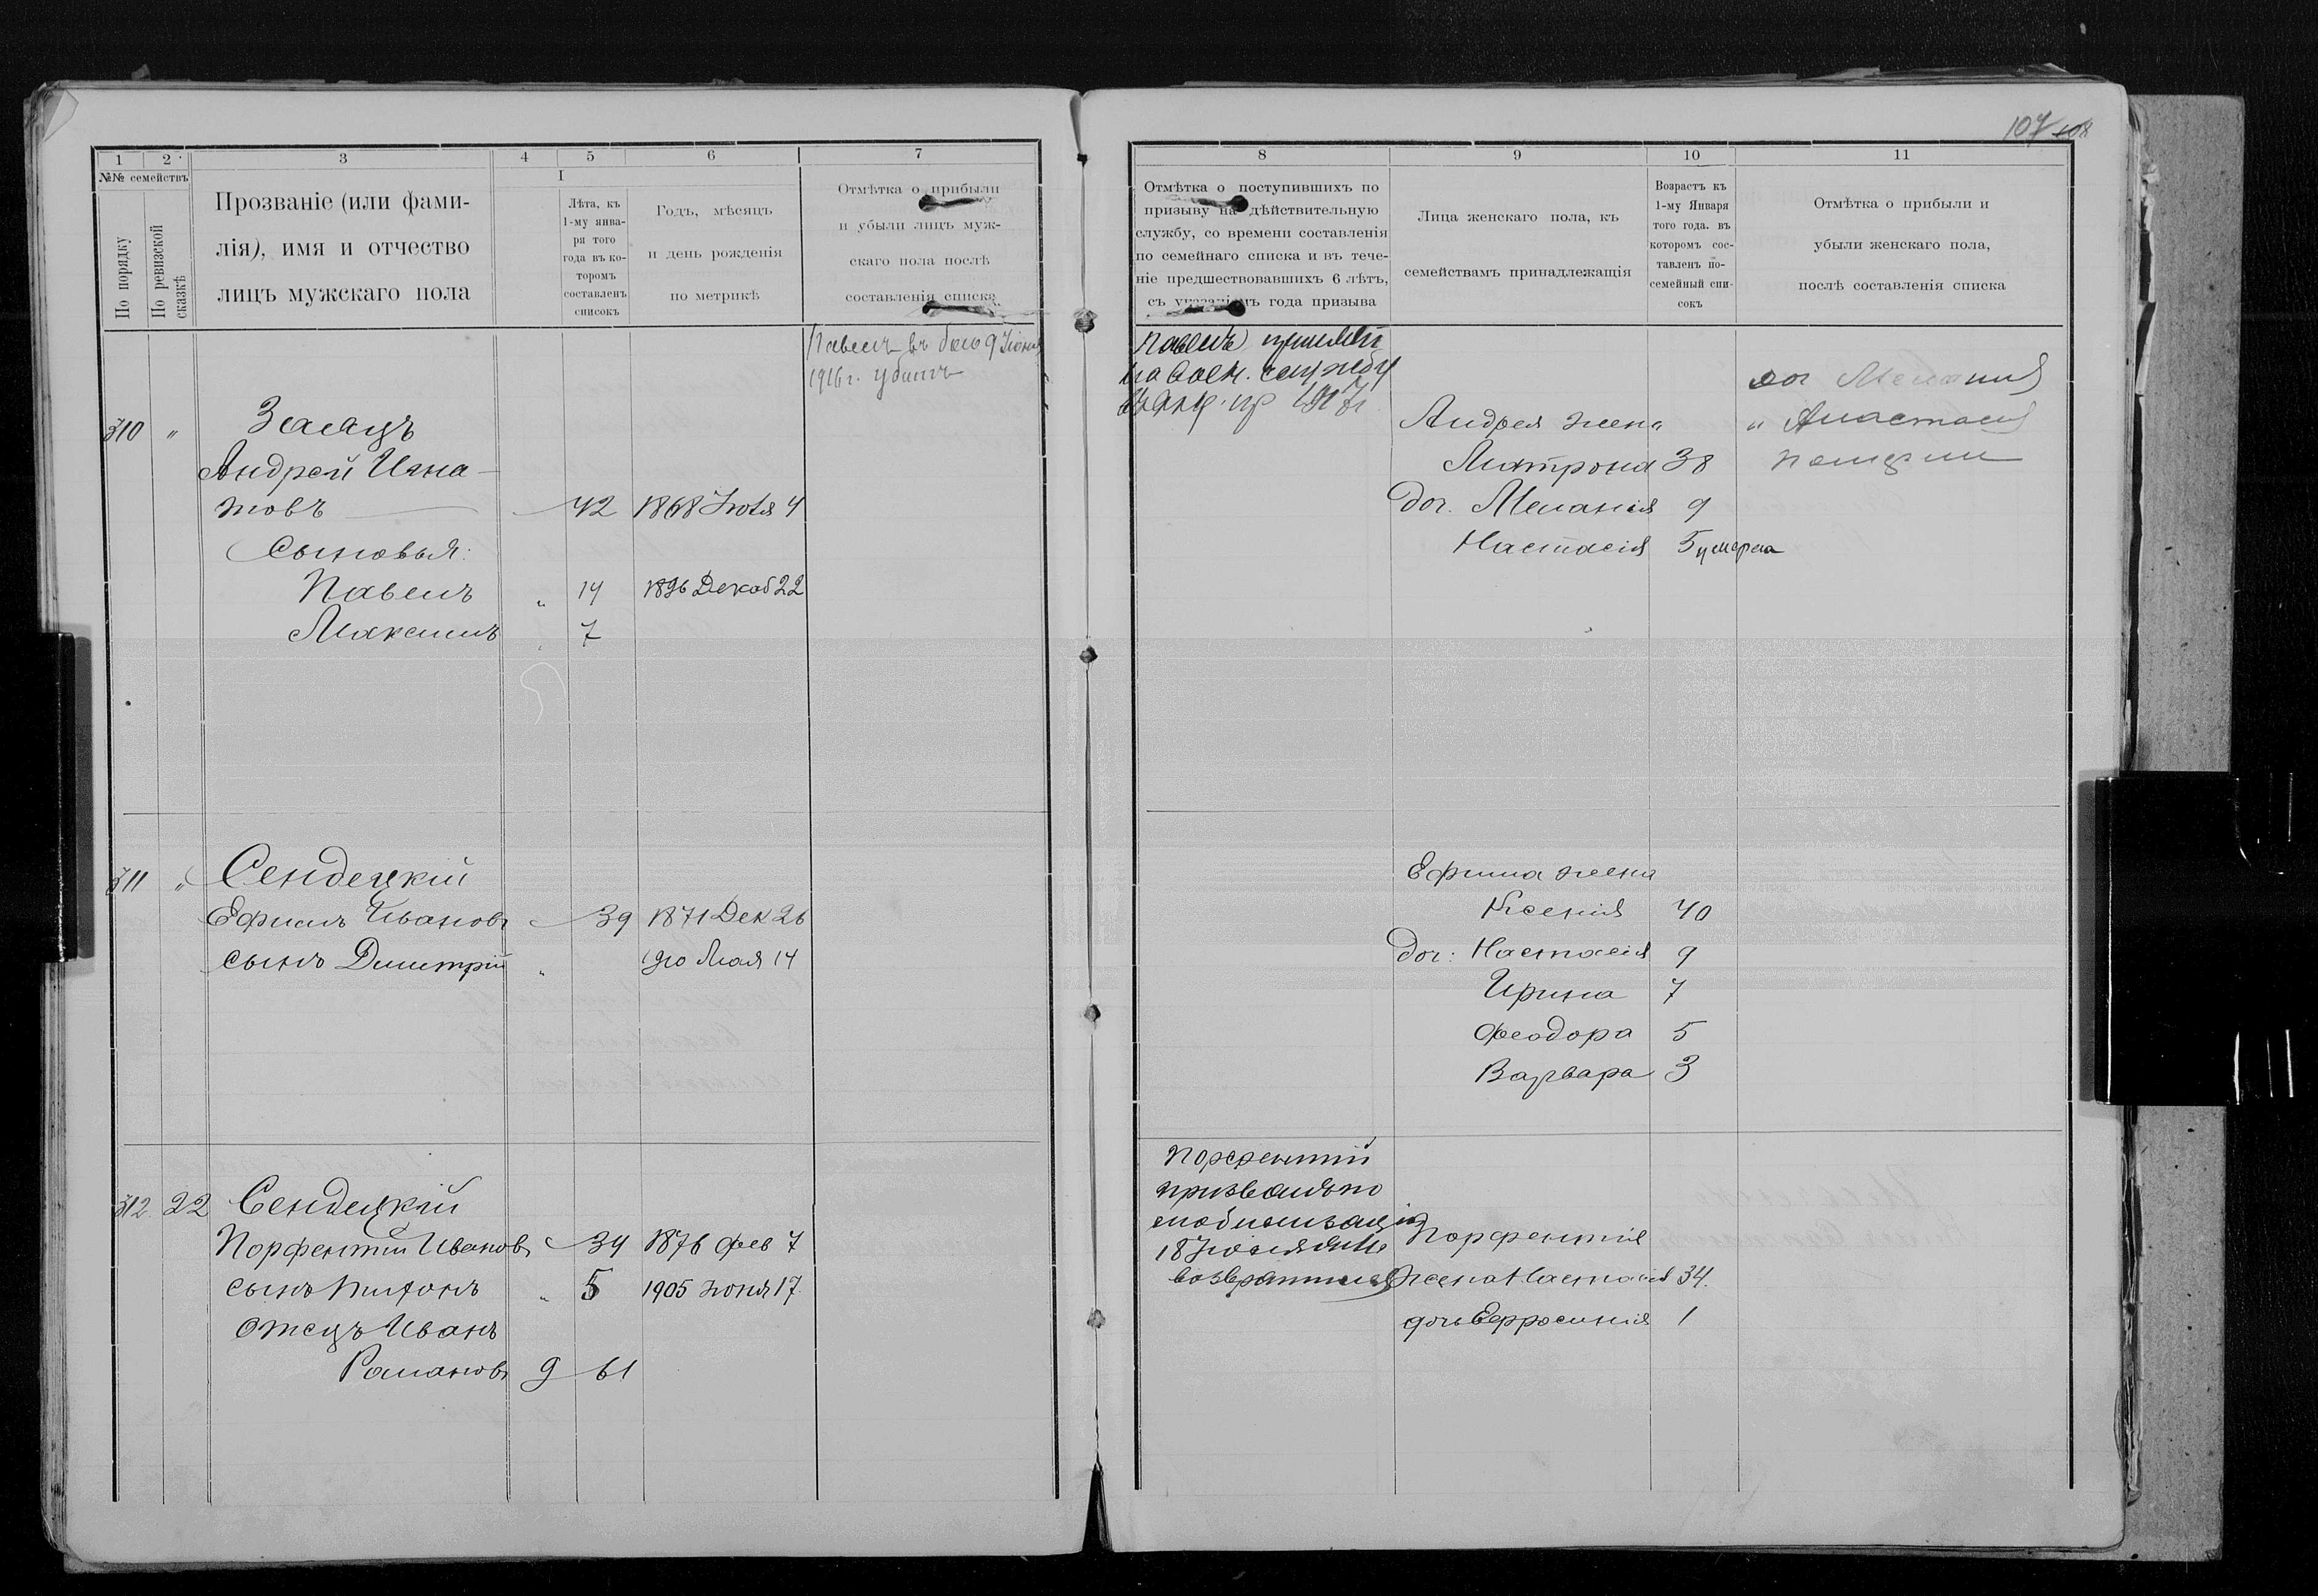 107 108
1 2 3 4 5 6 7
№№ семействъ
По порядку
По ревизской сказкѣ
Прозваніе (или фами-
лія), имя и отчество
лицъ мужскаго пола
I
Лѣта, къ
1-му янва-
ря того
года въ ко-
торомъ
составленъ
списокъ
Годъ, мѣсяцъ
и день рожденія
по метрикѣ
Отмѣтка о прибыли
и убыли лицъ муж-
скаго пола послѣ
составленія списка
Павелъ въ бою 9 Іюня
1916 г. убитъ
310 " Заяцъ
Андрей Игна-
товъ 42 1868 Іюля 4
Сыновья:
Павелъ " 14 1896 Декаб 22
Максимъ " 7
311 " Сендецкій
Ефимъ Ивановъ 39 1871 Дек 26
сынъ Димитрій " 910 Мая 14
312 22 Сендецкій
Порфентій Ивановъ 34 1876 фев 7
сынъ " 5 1905 Іюня 17
Отецъ Иванъ
Романовъ 9 61
8 9 10 11
Отмѣтка о поступившихъ по
призыву на дѣйствительную
службу, со времени составленія
по семейнаго списка и въ тече-
ніе предшествовавшихъ 6 лѣтъ,
съ указаніемъ года призыва
Лица женскаго пола, къ
семействамъ принадлежащія
Возрастъ къ
1-му Января
того года. въ
которомъ сос-
тавленъ по-
семейный спи-
сокъ
Отмѣтка о прибыли и
убыли женскаго пола,
послѣ составленія списка
Павелъ принятъ
на воен. службу
доч Меланія
" Анастасія
Андрея жена
Матрона 38
доч. Меланія 9
Настасія 5 умерла
Ефима жена
Ксенія 40
доч: Настасія 9
Ирина 7
Феодора 5
Варвара 3
Порфентій
призванъ по
мобилизаціи
18 Іюля
возвратился
Порфентія
жена Настасія 34.
дочь Ефросинія 1